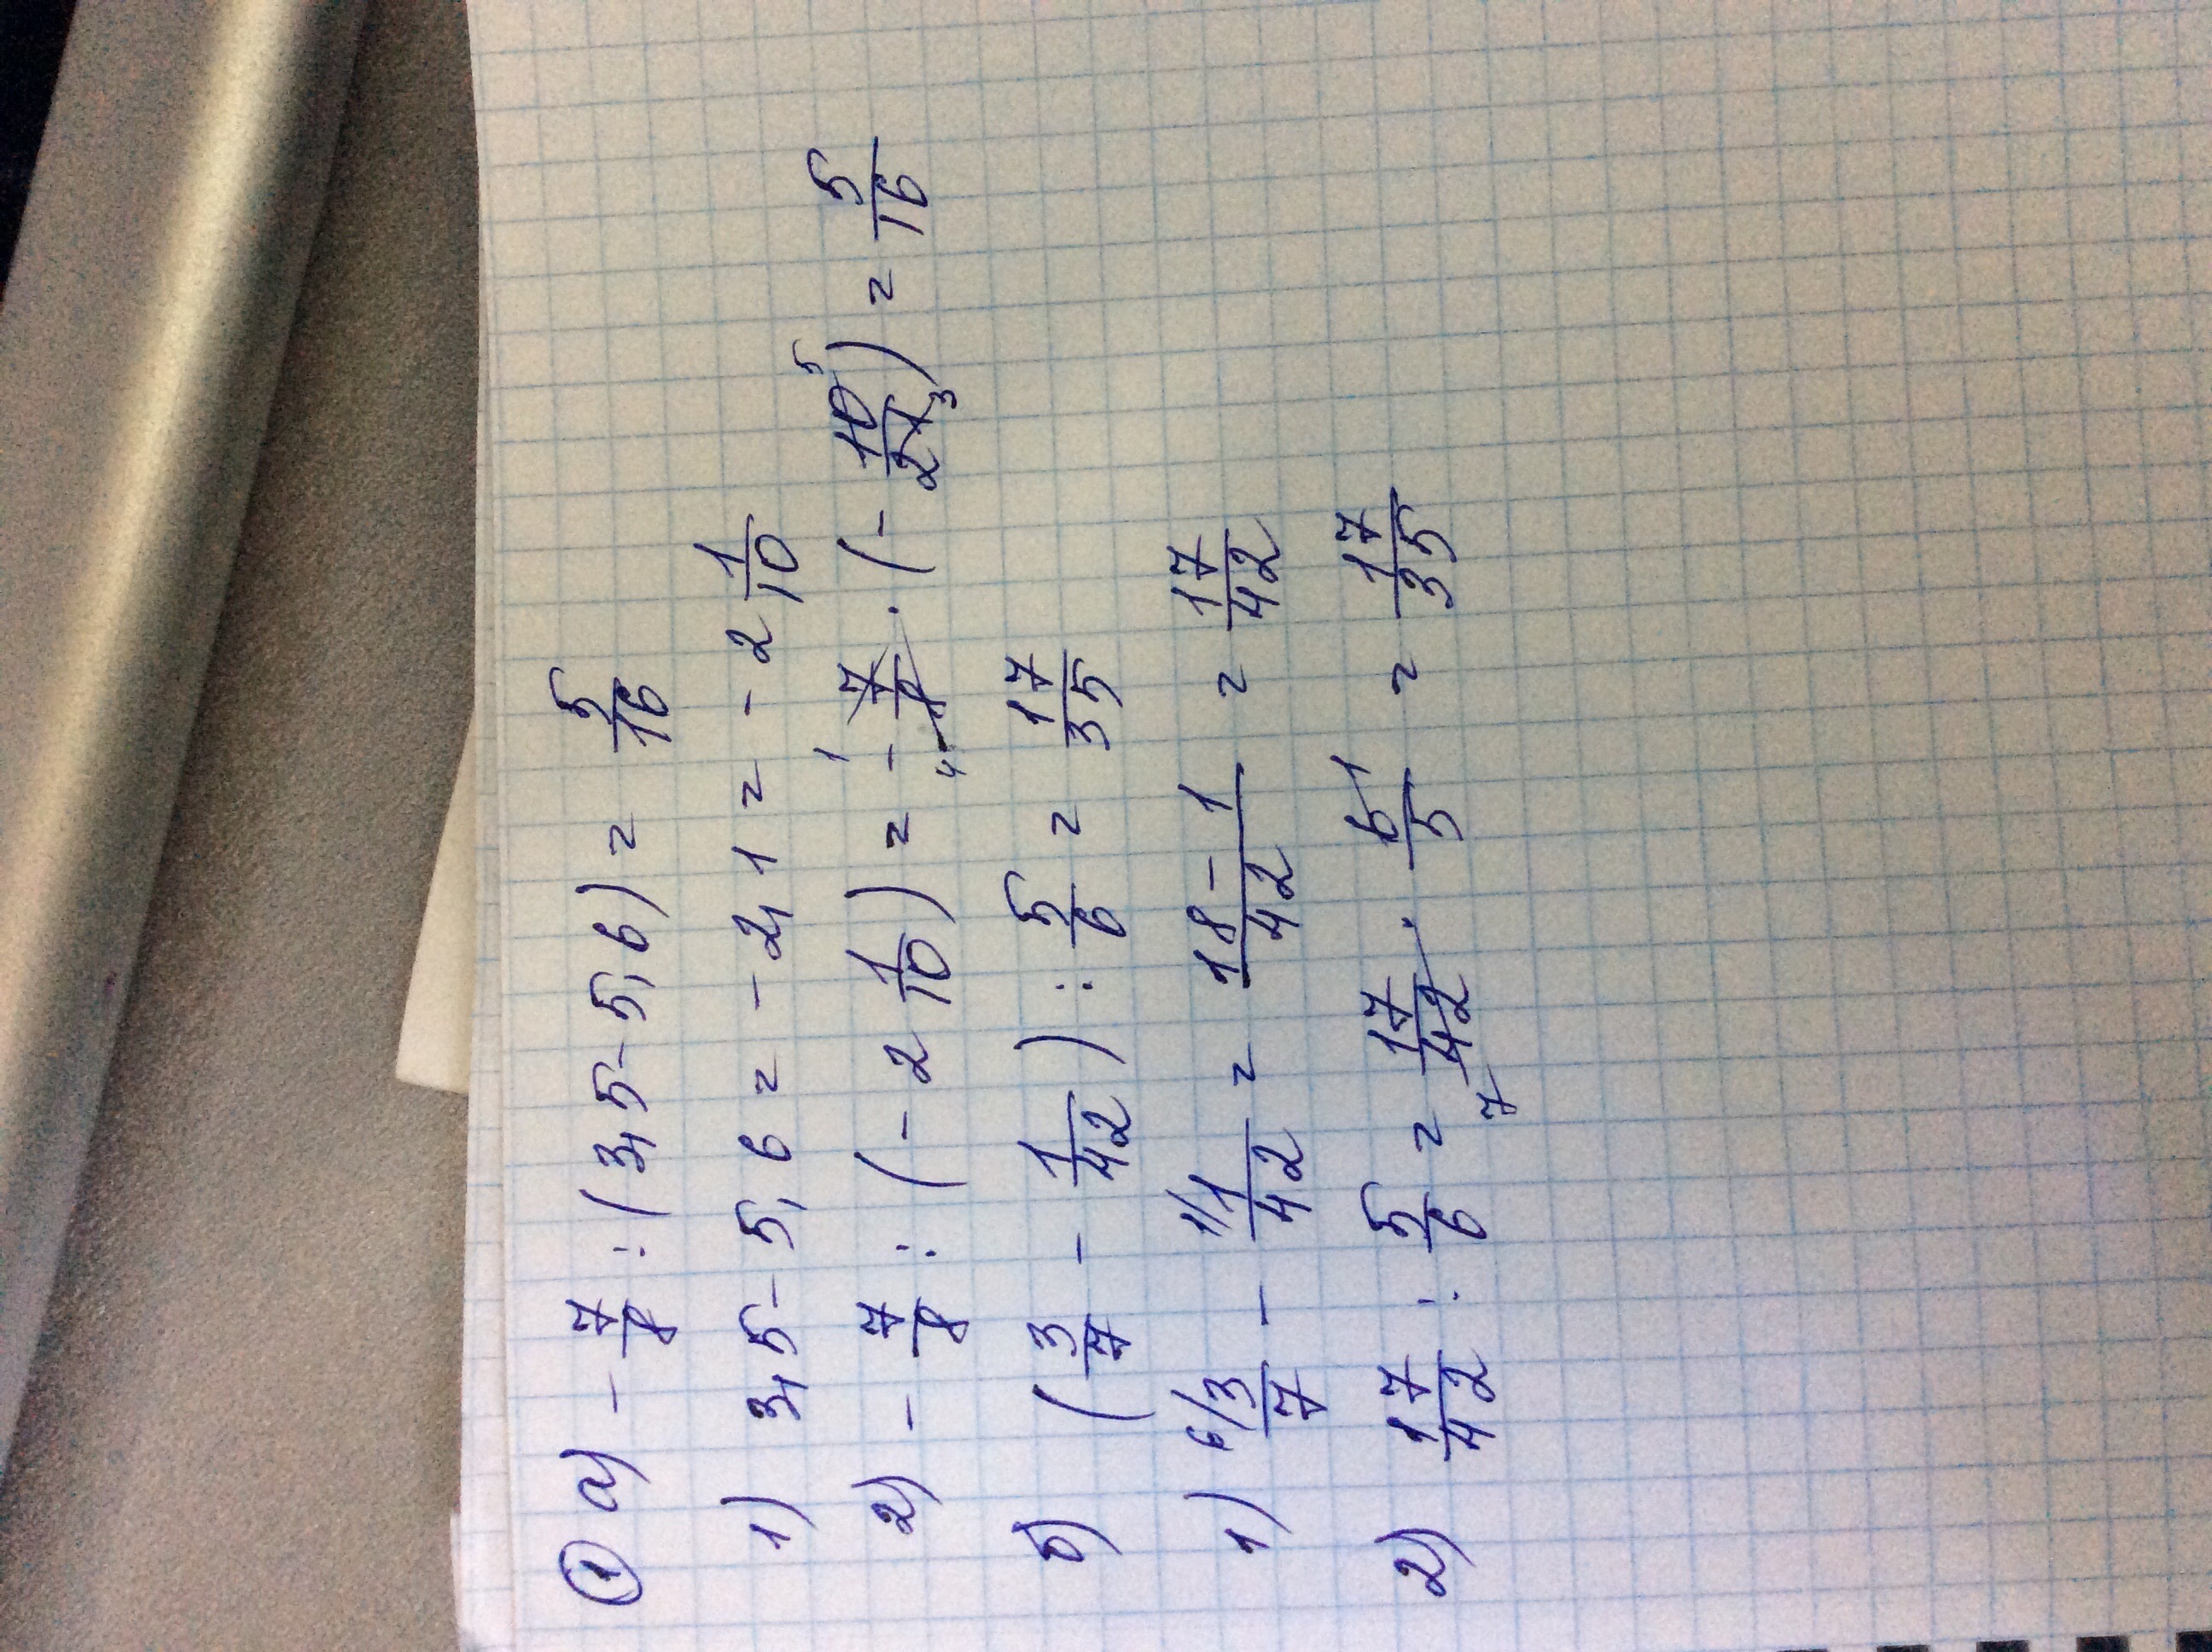 ① а) - 7/8 : (3,5 - 5,6) = 5/16
1) 3,5 - 5,6 = - 2,1 = - 2 1/10
2) - 7/8 : (- 2 1/10) = - 7/8 · (- 10/21) = 5/16
б) (3/7 - 1/42) : 5/6 = 17/35
1) 6/ 3/7 - 1/ 1/42 = 18-1/42 = 17/42
2) 17/42 : 5/6 = 17/42 · 6/5 = 17/35